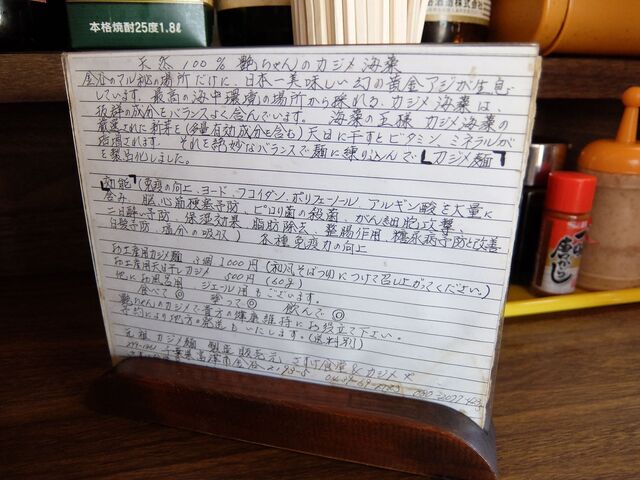 本格焼酎25度1.8ℓ
天然100%艶ちゃんのカジメ海藻
金谷のマル秘の場所だけに、日本一美味しい幻の黄金アジが生息
しています。最高の海中環境の場所から採れる、カジメ海藻は、
抜群の成分をバランスよく含んでいます。 海藻の王様カジメ海藻の
厳選された新芽を(多量有効成分を含む)天日に干すとビタミン、ミネラルが
倍増されます。それを絶妙なバランスで麺に練り込んで「カジメ麺」
を製品化しました。
「効能」(免疫の向上、ヨード、フコイダン、ポリフェノール、アルギン酸を大量に
含み、脳、心筋梗塞予防、ピロリ菌の殺菌、がん細胞攻撃、
二日酔い予防、保湿効果、脂肪除去、整腸作用、糖尿病予防と改善
白髪予防、塩分の吸収) 各種免疫力の向上
お土産用カジメ麺 3個1000円(和風そばつゆにつけて召し上がってください。)
お土産用天日干しカジメ 500円(60g)
他にお風呂用、ジェール用もございます。
食べて◎ 塗って◎ 飲んで◎
艶ちゃんのカジメで貴方の健康維持にお役立て下さい。
予約により地方の発送もいたします。(送料別)
元祖カジメ麺 製造販売元 さすけ食堂&カジメ
千葉県富津市金谷2193-5